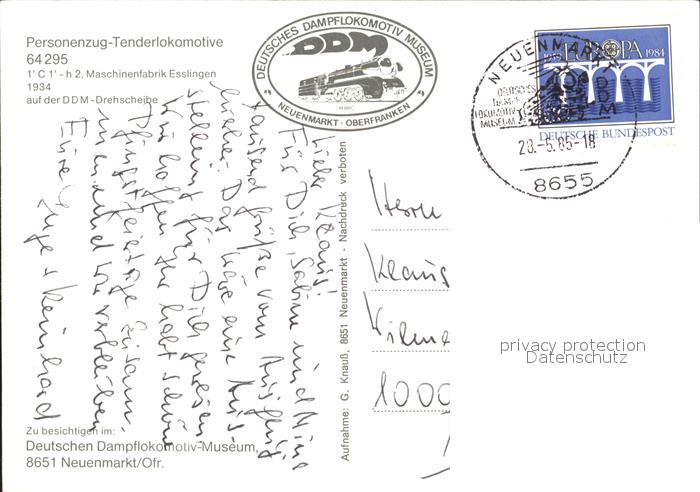 Personenzug-Tenderlokomotive
64 295
1' C 1' - h 2, Maschinenfabrik Esslingen
1934
auf der DDM-Drehscheibe
DEUTSCHES DAMPFLOKOMOTIV MUSEUM
DDM
NEUENMARKT · OBERFRANKEN
NEUENMARKT
DEUTSCHES
DAMPF-
LOKOMOTIV
MUSEUM
DDM
28.-5.85-18
8655
EUROPA 1984
DEUTSCHE BUNDESPOST
Lieber Klaus!
Für Dich, Sabine und Nina
tausend Grüße vom Ausflug
hierher. Das wäre eine Aus-
stellung für Dich gewesen.
Wir hoffen Ihr habt schöne
Pfingstfeiertage
und wir verbleiben
Eure Inge + Reinhard
Aufnahme: G. Knauß, 8651 Neuenmarkt - Nachdruck verboten
Herrn
Klaus
1000
privacy protection
Datenschutz
Zu besichtigen im:
Deutschen Dampflokomotiv-Museum,
8651 Neuenmarkt/Ofr.